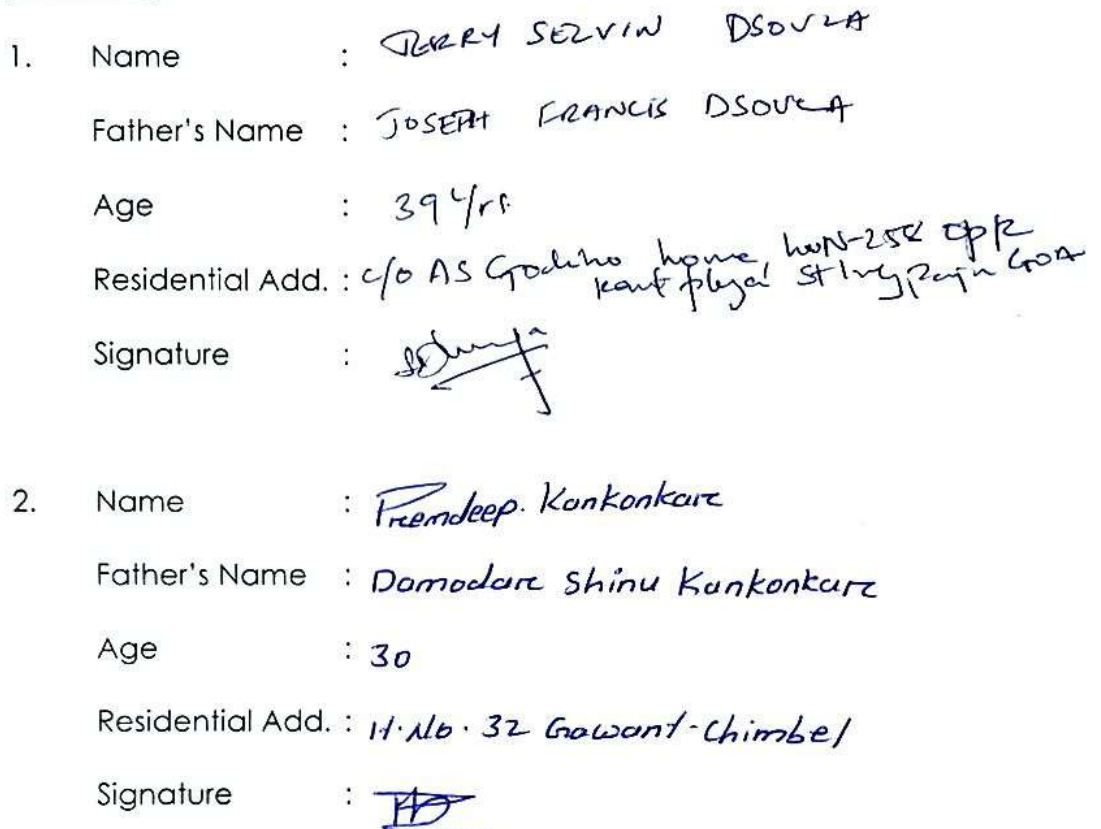 1. Name : JERRY SELVIN DSOUZA
Father's Name : JOSEPH FRANCIS DSOUZA
Age : 39 Yrs
Residential Add. : c/o AS Godinho home, GOA
Signature :
2. Name : Premdeep. Kankonkar
Father's Name : Damodar Shinu Kankonkar
Age : 30
Residential Add. : H.No. 32 Gawant-Chimbel
Signature :